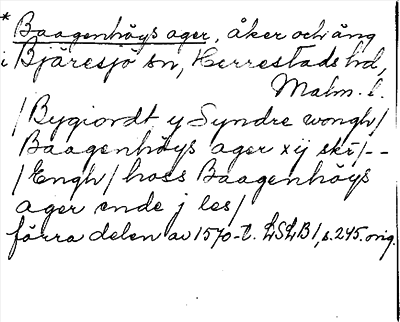 * Baagenhöys ager, åker och äng
i Bjäresjö sn, Herrestads hd,
Malm. l.
/Bygiordt y Syndre wongh/
Baagenhöys ager xij skr/--
/Engh/ hoes Baagenhöys
ager ende j les/
förra delen av 1570-t. LSLB1, s. 245. orig.